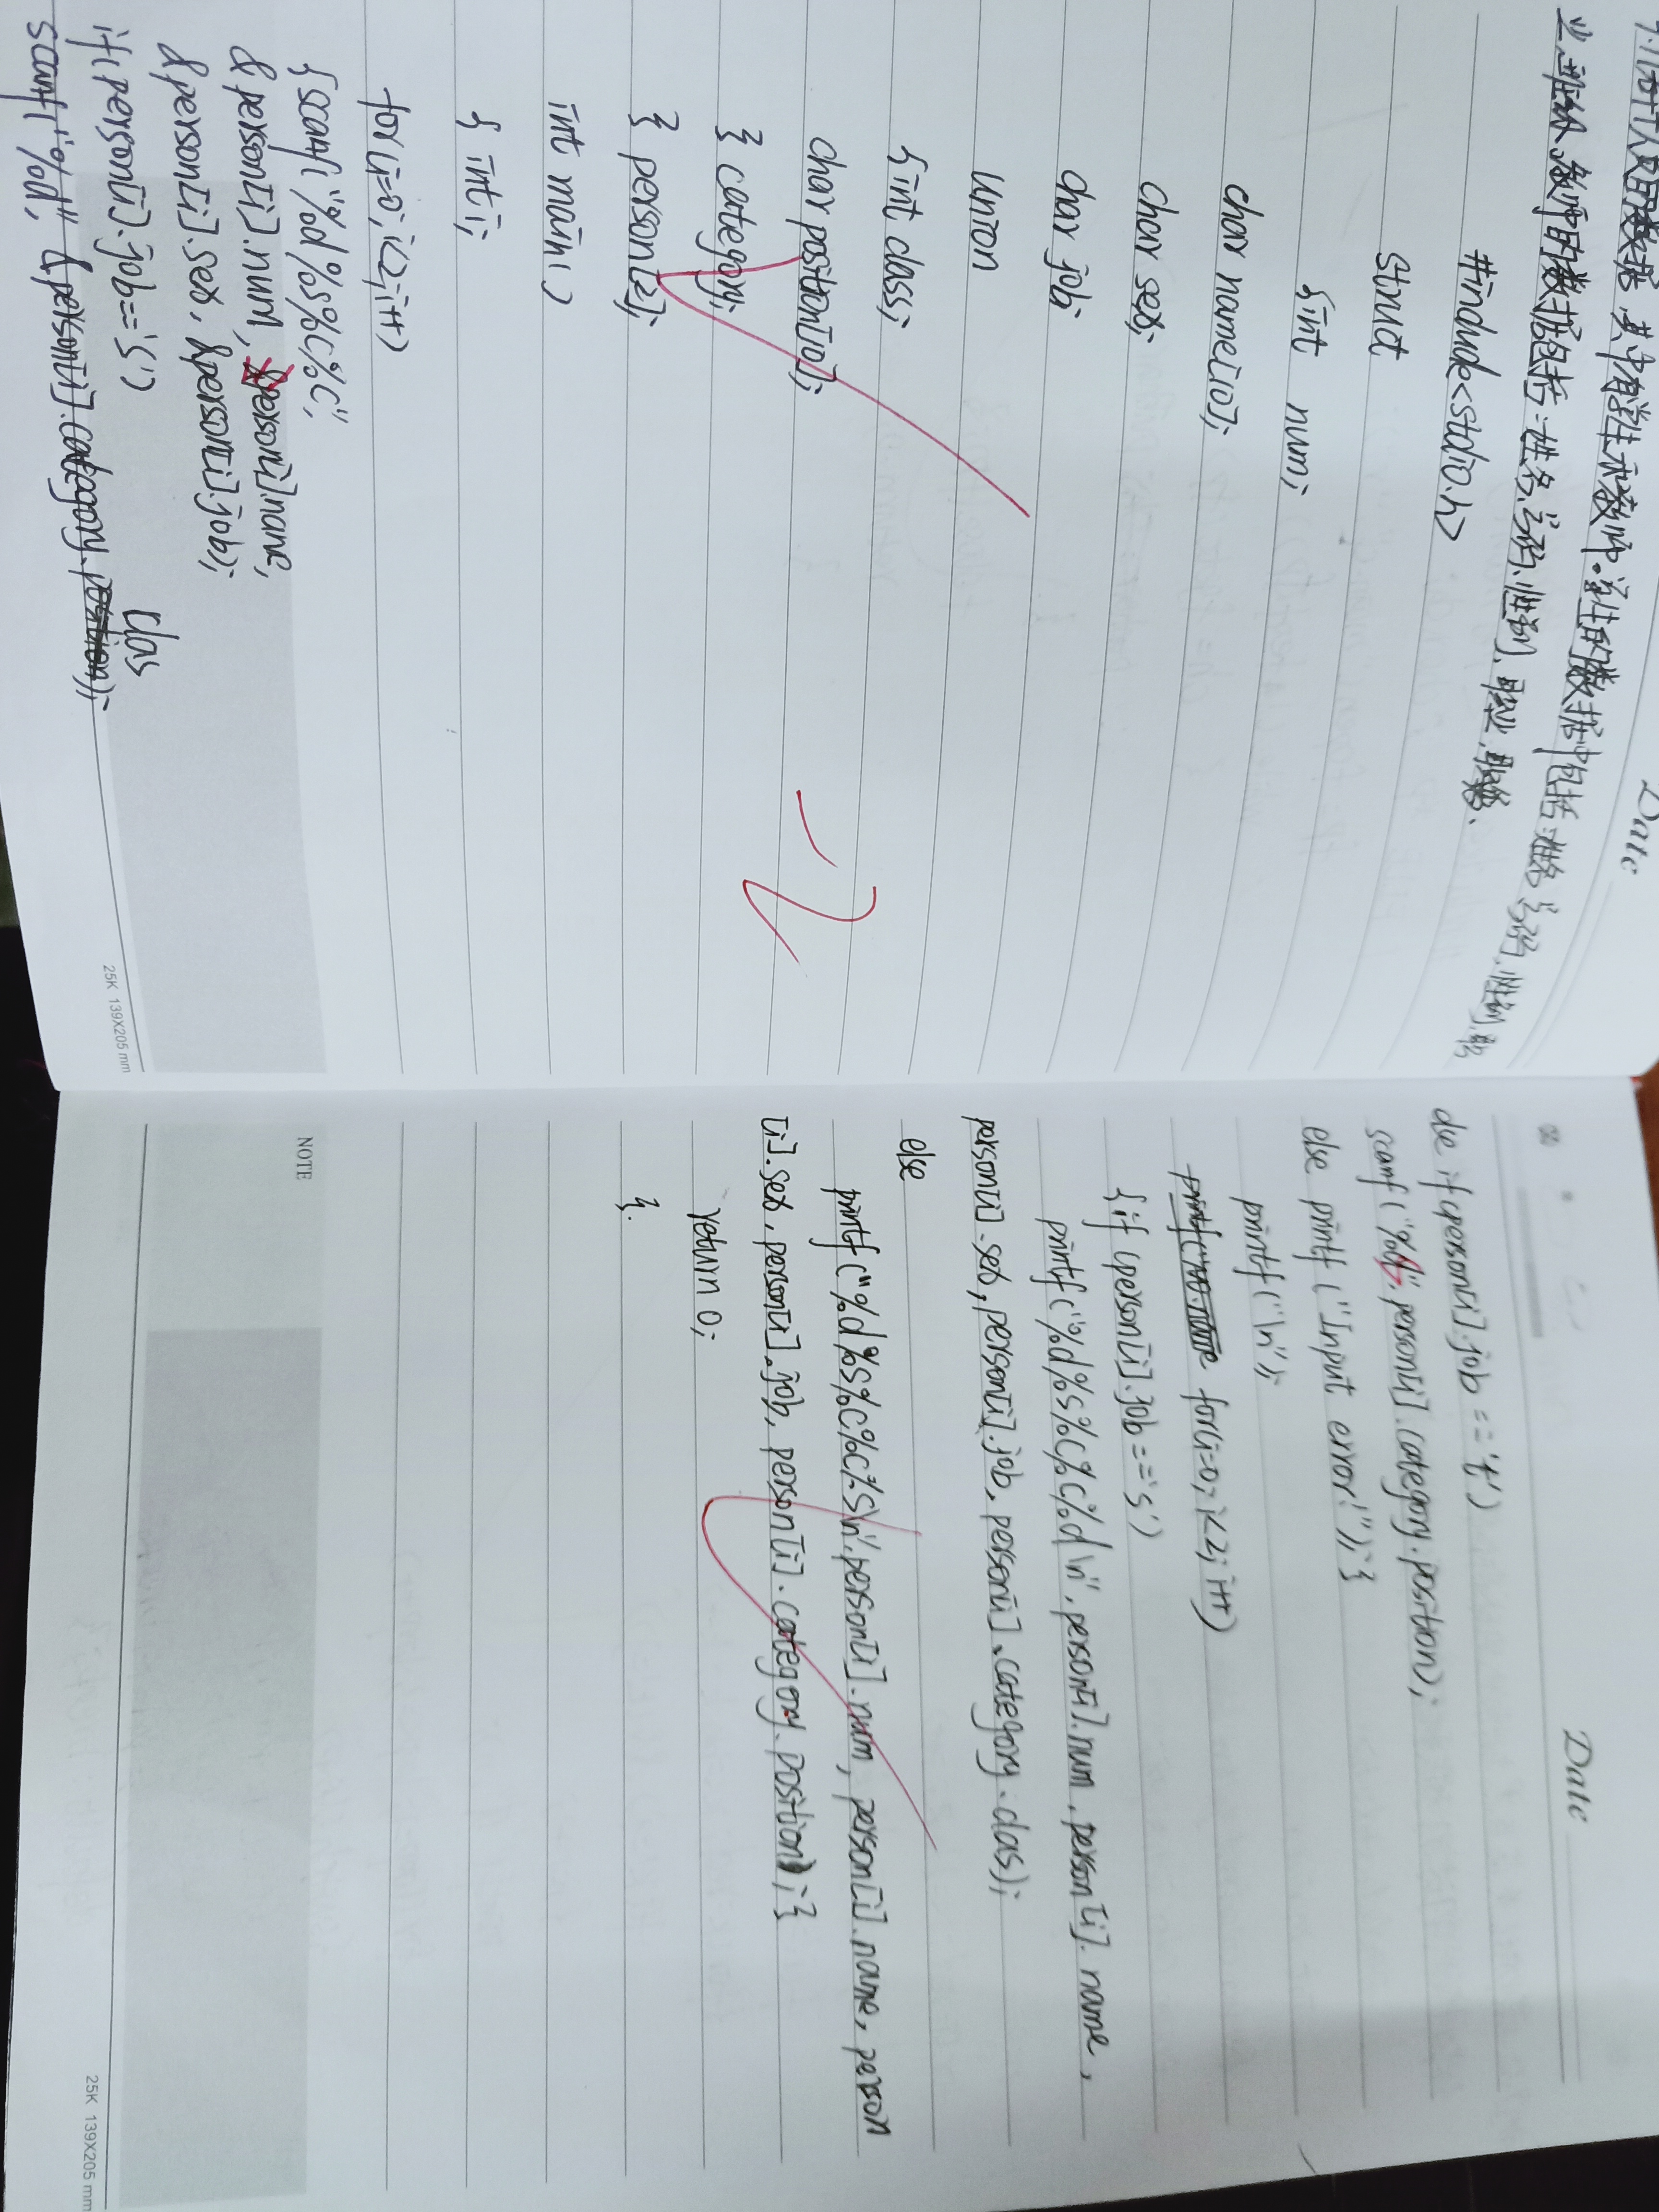 Date
有若干人员的数据,其中有学生和教师。学生的数据中包括:姓名、号码、性别、职
业、班级、教师的数据包括:姓名、号码、性别、职业、职务、
#include<stdio.h>
struct
{int num;
char name[10];
char sex;
char job;
union
{int class;
char position[10];
} category;
} person[2];
int main()
{ int i;
for(i=0;i<2;i++)
{scanf("%d%s%c%c",
&person[i].num, person[i].name,
&person[i].sex, &person[i].job);
if(person[i].job=='s')
clas
scanf("%d", &person[i].category.position);
25K 139X205 mm
Date
if(person[i].job=='t')
scanf("%s", person[i].category.position);
else printf("Input error!");}
printf("\n");
for(i=0;i<2;i++)
{if (person[i].job=='s')
printf("%d%s%c%c%d\n", person[i].num, person[i].name,
person[i].sex, person[i].job, person[i].category.clas);
else
printf("%d%s%c%c%s\n",person[i].num, person[i].name, person
[i].sex, person[i].job, person[i].category.position);}
return 0;
}.
NOTE
25K 139X205 mm